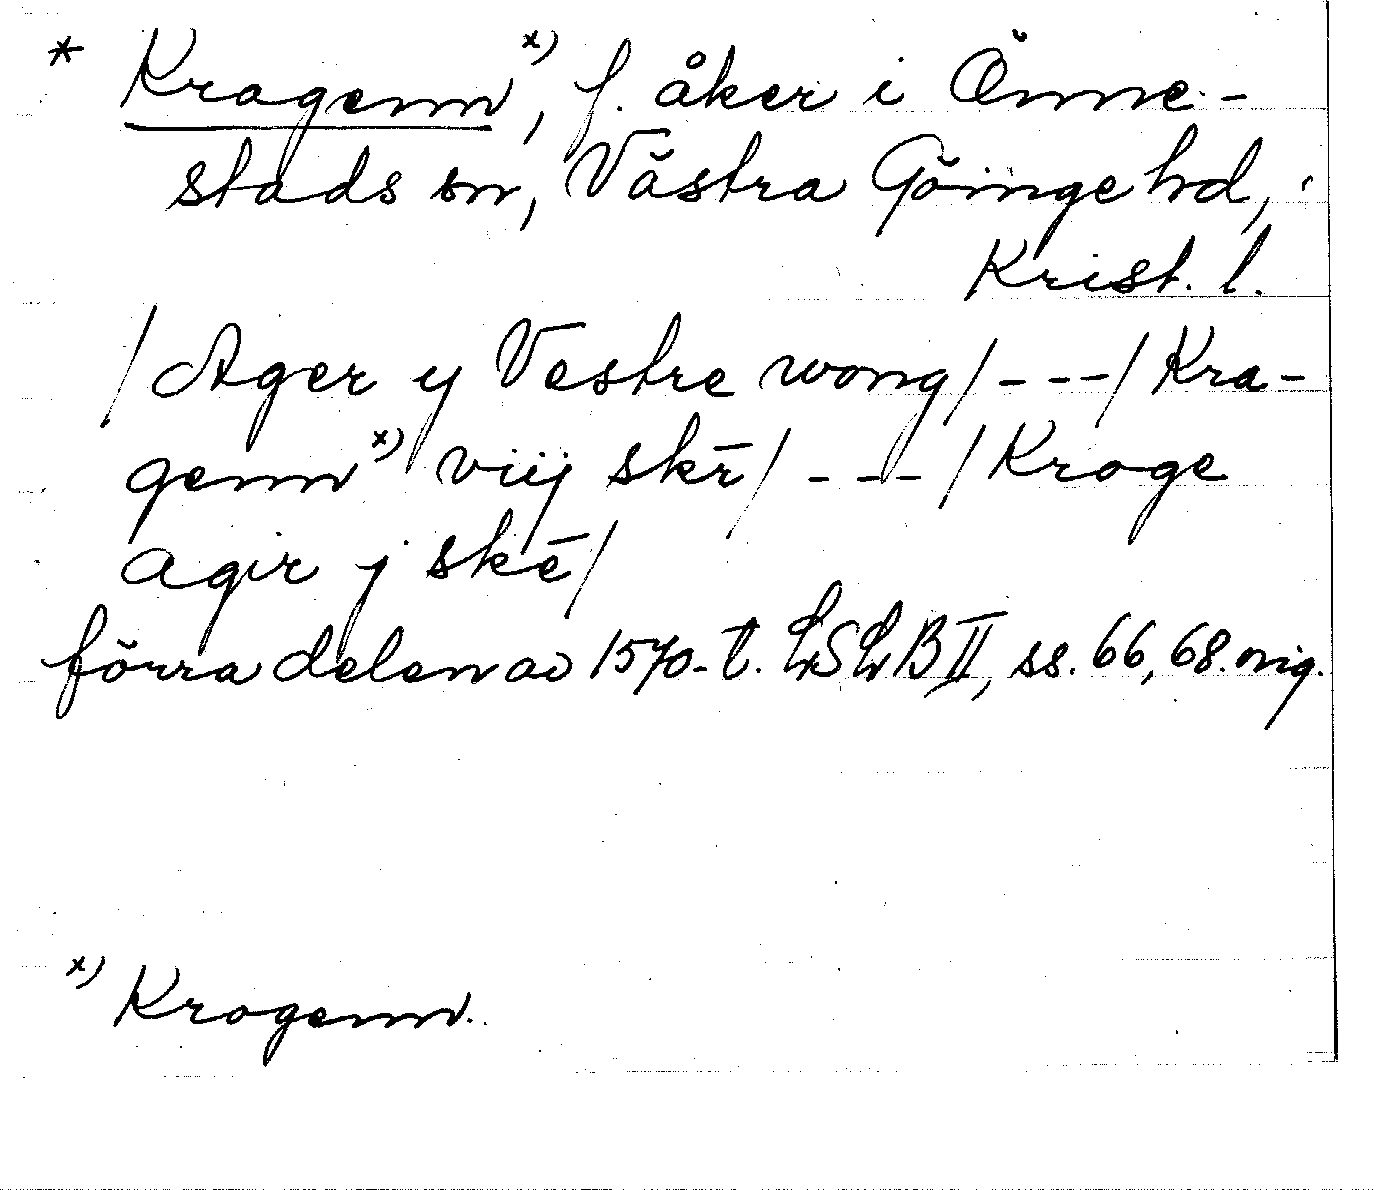 * Kragenn x), f. åker i Önne-
stads sn, Västra Göinge hd,
Krist. l.
/Ager y Vestre wong/ - - - / Kra-
genn x) viij skr̄/ - - - / Kroge
agir j skē/
förra delen av 1570-t. LSLB II, ss. 66, 68. orig.
x) Krogenn.